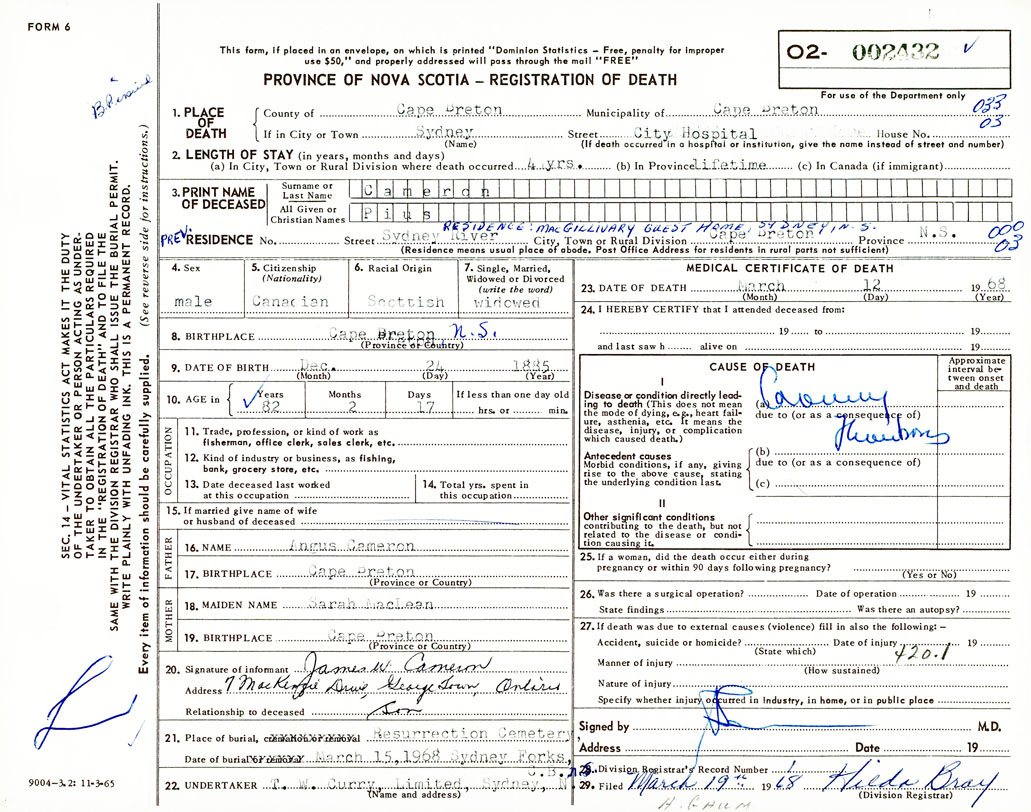 FORM 6
This form, if placed in an envelope, on which is printed "Dominion Statistics – Free, penalty for improper
use $50," and properly addressed will pass through the mail "FREE"
PROVINCE OF NOVA SCOTIA – REGISTRATION OF DEATH
O2- 002432
For use of the Department only
033
03
1. PLACE OF DEATH
County of Cape Breton Municipality of Cape Breton
If in City or Town Sydney Street City Hospital House No.
(Name) (If death occurred in a hospital or institution, give the name instead of street and number)
2. LENGTH OF STAY (in years, months and days)
(a) In City, Town or Rural Division where death occurred 4 yrs. (b) In Province lifetime (c) In Canada (if immigrant)
3. PRINT NAME OF DECEASED
Surname or Last Name Cameron
All Given or Christian Names Pius
RESIDENCE: MACGILLIVARY GUEST HOME, SYDNEY, N.S.
PREV. RESIDENCE No. Street Sydney River City, Town or Rural Division Cape Breton Province N.S.
000
03
(Residence means usual place of abode. Post Office Address for residents in rural parts not sufficient)
4. Sex
male
5. Citizenship
(Nationality)
Canadian
6. Racial Origin
Scottish
7. Single, Married, Widowed or Divorced
(write the word)
widowed
8. BIRTHPLACE Cape Breton N.S.
(Province or Country)
9. DATE OF BIRTH Dec. 24 1885
(Month) (Day) (Year)
10. AGE in Years Months Days If less than one day old
82 2 17 hrs. or min.
OCCUPATION
11. Trade, profession, or kind of work as
fisherman, office clerk, sales clerk, etc.
12. Kind of industry or business, as fishing,
bank, grocery store, etc.
13. Date deceased last worked
at this occupation
14. Total yrs. spent in
this occupation
15. If married give name of wife
or husband of deceased
FATHER
16. NAME Angus Cameron
17. BIRTHPLACE Cape Breton
(Province or Country)
MOTHER
18. MAIDEN NAME Sarah MacLean
19. BIRTHPLACE Cape Breton
(Province or Country)
20. Signature of informant James W. Cameron
Address 7 MacKenzie Drive, Georgetown, Ontario
Relationship to deceased Son
21. Place of burial, cremation or removal Resurrection Cemetery,
Date of burial or removal March 15, 1968 Sydney Forks,
C.B.
22. UNDERTAKER T. W. Curry, Limited, Sydney, N
(Name and address)
MEDICAL CERTIFICATE OF DEATH
23. DATE OF DEATH March 12 1968
(Month) (Day) (Year)
24. I HEREBY CERTIFY that I attended deceased from:
19 to 19
and last saw h alive on 19
CAUSE OF DEATH
Approximate interval between onset and death
I
Disease or condition directly leading to death (This does not mean the mode of dying, e.g., heart failure, asthenia, etc. It means the disease, injury, or complication which caused death.)
(a) Coronary
due to (or as a consequence of)
Thrombosis
Antecedent causes
Morbid conditions, if any, giving rise to the above cause, stating the underlying condition last.
(b)
due to (or as a consequence of)
(c)
II
Other significant conditions
contributing to the death, but not related to the disease or condition causing it.
25. If a woman, did the death occur either during
pregnancy or within 90 days following pregnancy?
(Yes or No)
26. Was there a surgical operation? Date of operation 19
State findings Was there an autopsy?
27. If death was due to external causes (violence) fill in also the following: –
Accident, suicide or homicide? Date of injury 19
(State which)
420.1
Manner of injury
(How sustained)
Nature of injury
Specify whether injury occurred in industry, in home, or in public place
Signed by M.D.
Address Date 19
Division Registrar's Record Number
29. Filed March 19th 1968 Hilda Bray
(Division Registrar)
SEC. 14 – VITAL STATISTICS ACT MAKES IT THE DUTY
OF THE UNDERTAKER OR PERSON ACTING AS UNDER-
TAKER TO OBTAIN ALL THE PARTICULARS REQUIRED
IN THE "REGISTRATION OF DEATH" AND TO FILE THE
SAME WITH THE DIVISION REGISTRAR WHO SHALL ISSUE THE BURIAL PERMIT.
WRITE PLAINLY WITH UNFADING INK. THIS IS A PERMANENT RECORD.
Every item of information should be carefully supplied. (See reverse side for instructions.)
9004–3.2: 11-3-65